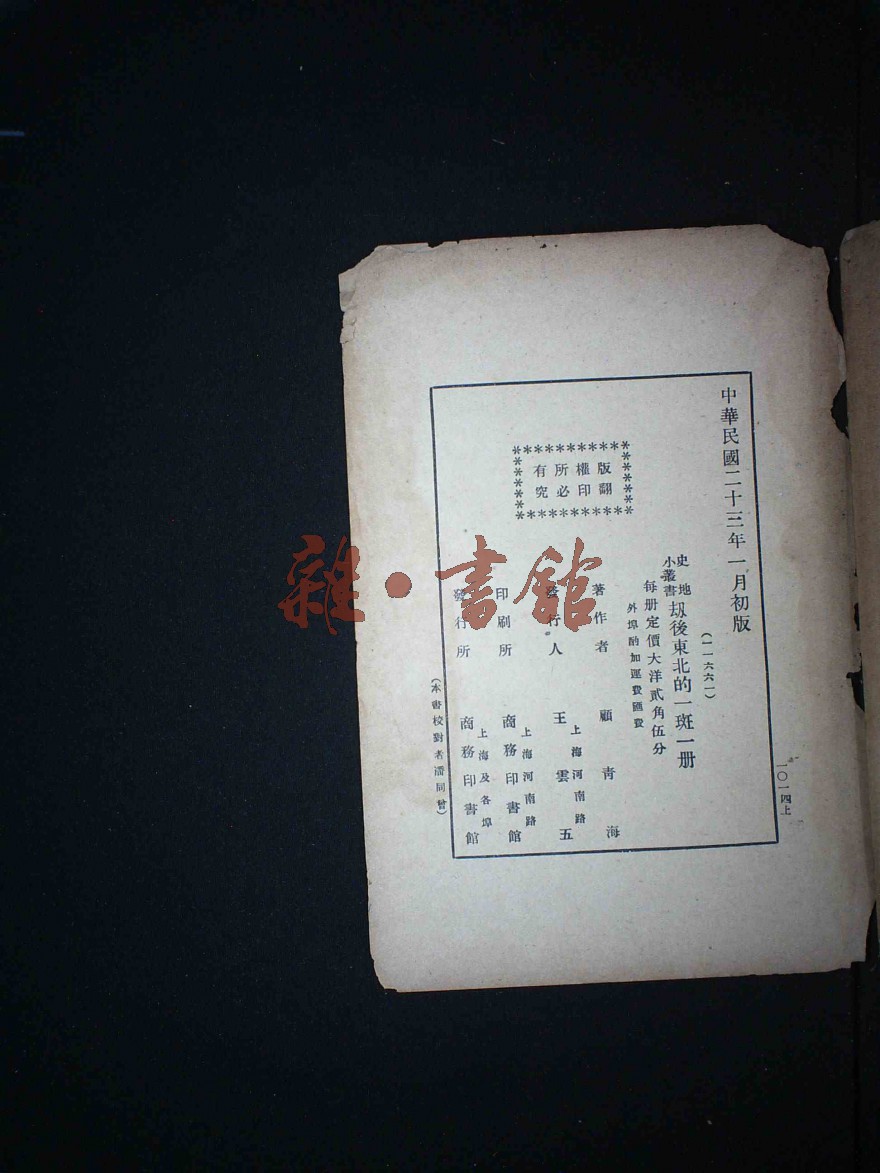 中華民國二十三年一月初版
(一一六六一)
史地
小叢書
劫後東北的一斑一册
每册定價大洋貳角伍分
外埠酌加運費匯費
著作者 顧青海
上海河南路
發行人 王雲五
上海河南路
印刷所 商務印書館
上海及各埠
發行所 商務印書館
版權所有
翻印必究
(本書校對者潘同曾)
一〇一四上
雜·書館